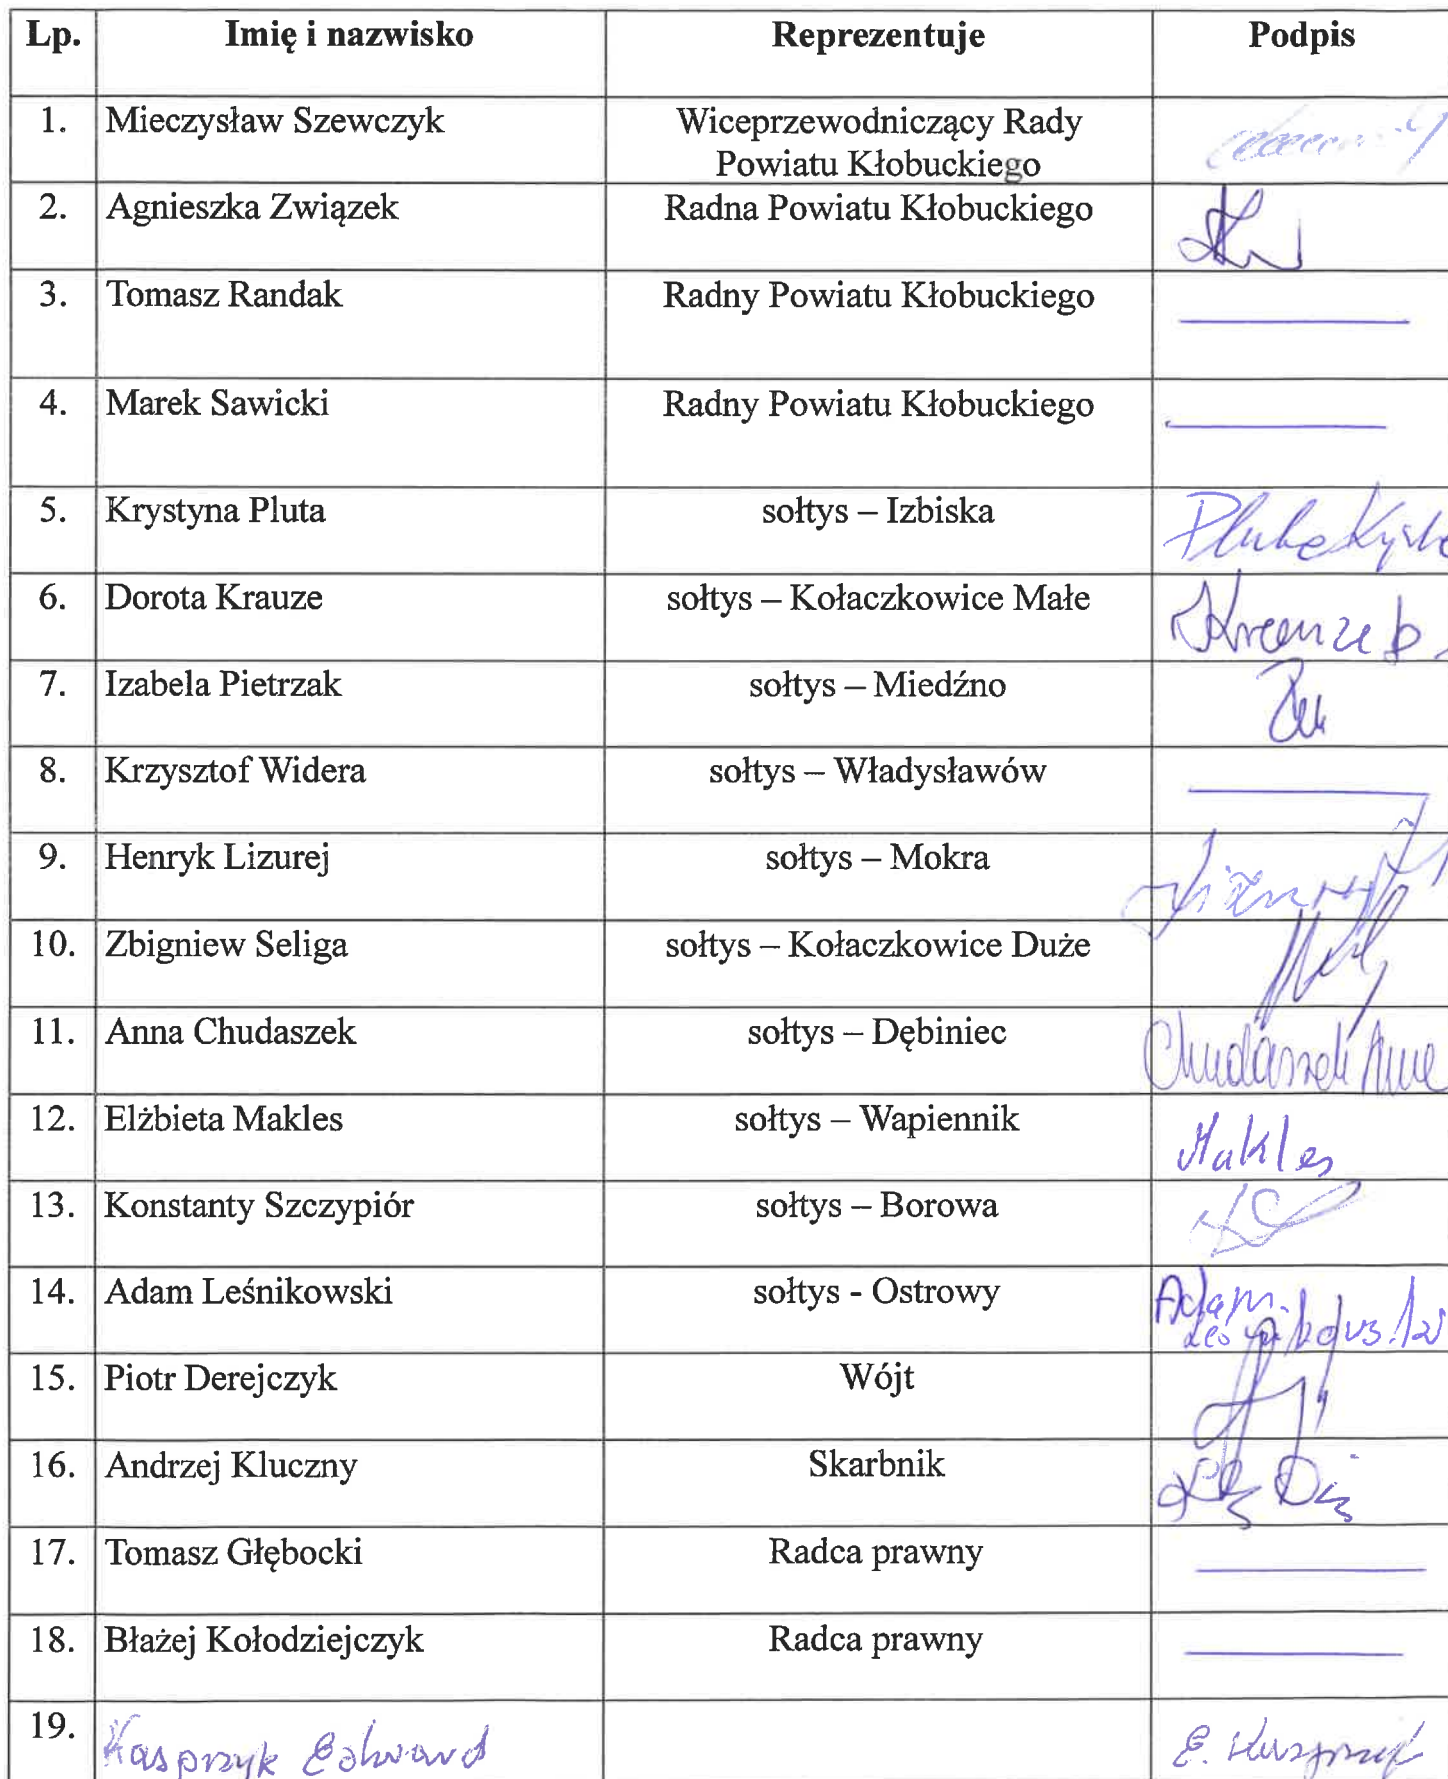 Lp. Imię i nazwisko Reprezentuje Podpis
1. Mieczysław Szewczyk Wiceprzewodniczący Rady
Powiatu Kłobuckiego
2. Agnieszka Związek Radna Powiatu Kłobuckiego
3. Tomasz Randak Radny Powiatu Kłobuckiego
4. Marek Sawicki Radny Powiatu Kłobuckiego
5. Krystyna Pluta sołtys – Izbiska
6. Dorota Krauze sołtys – Kołaczkowice Małe
7. Izabela Pietrzak sołtys – Miedźno
8. Krzysztof Widera sołtys – Władysławów
9. Henryk Lizurej sołtys – Mokra
10. Zbigniew Seliga sołtys – Kołaczkowice Duże
11. Anna Chudaszek sołtys – Dębiniec Chudaszek
12. Elżbieta Makles sołtys – Wapiennik Makles
13. Konstanty Szczypiór sołtys – Borowa
14. Adam Leśnikowski sołtys - Ostrowy Adam
15. Piotr Derejczyk Wójt
16. Andrzej Kluczny Skarbnik
17. Tomasz Głębocki Radca prawny
18. Błażej Kołodziejczyk Radca prawny
19. Kasprzyk Edward E. Kasprzyk